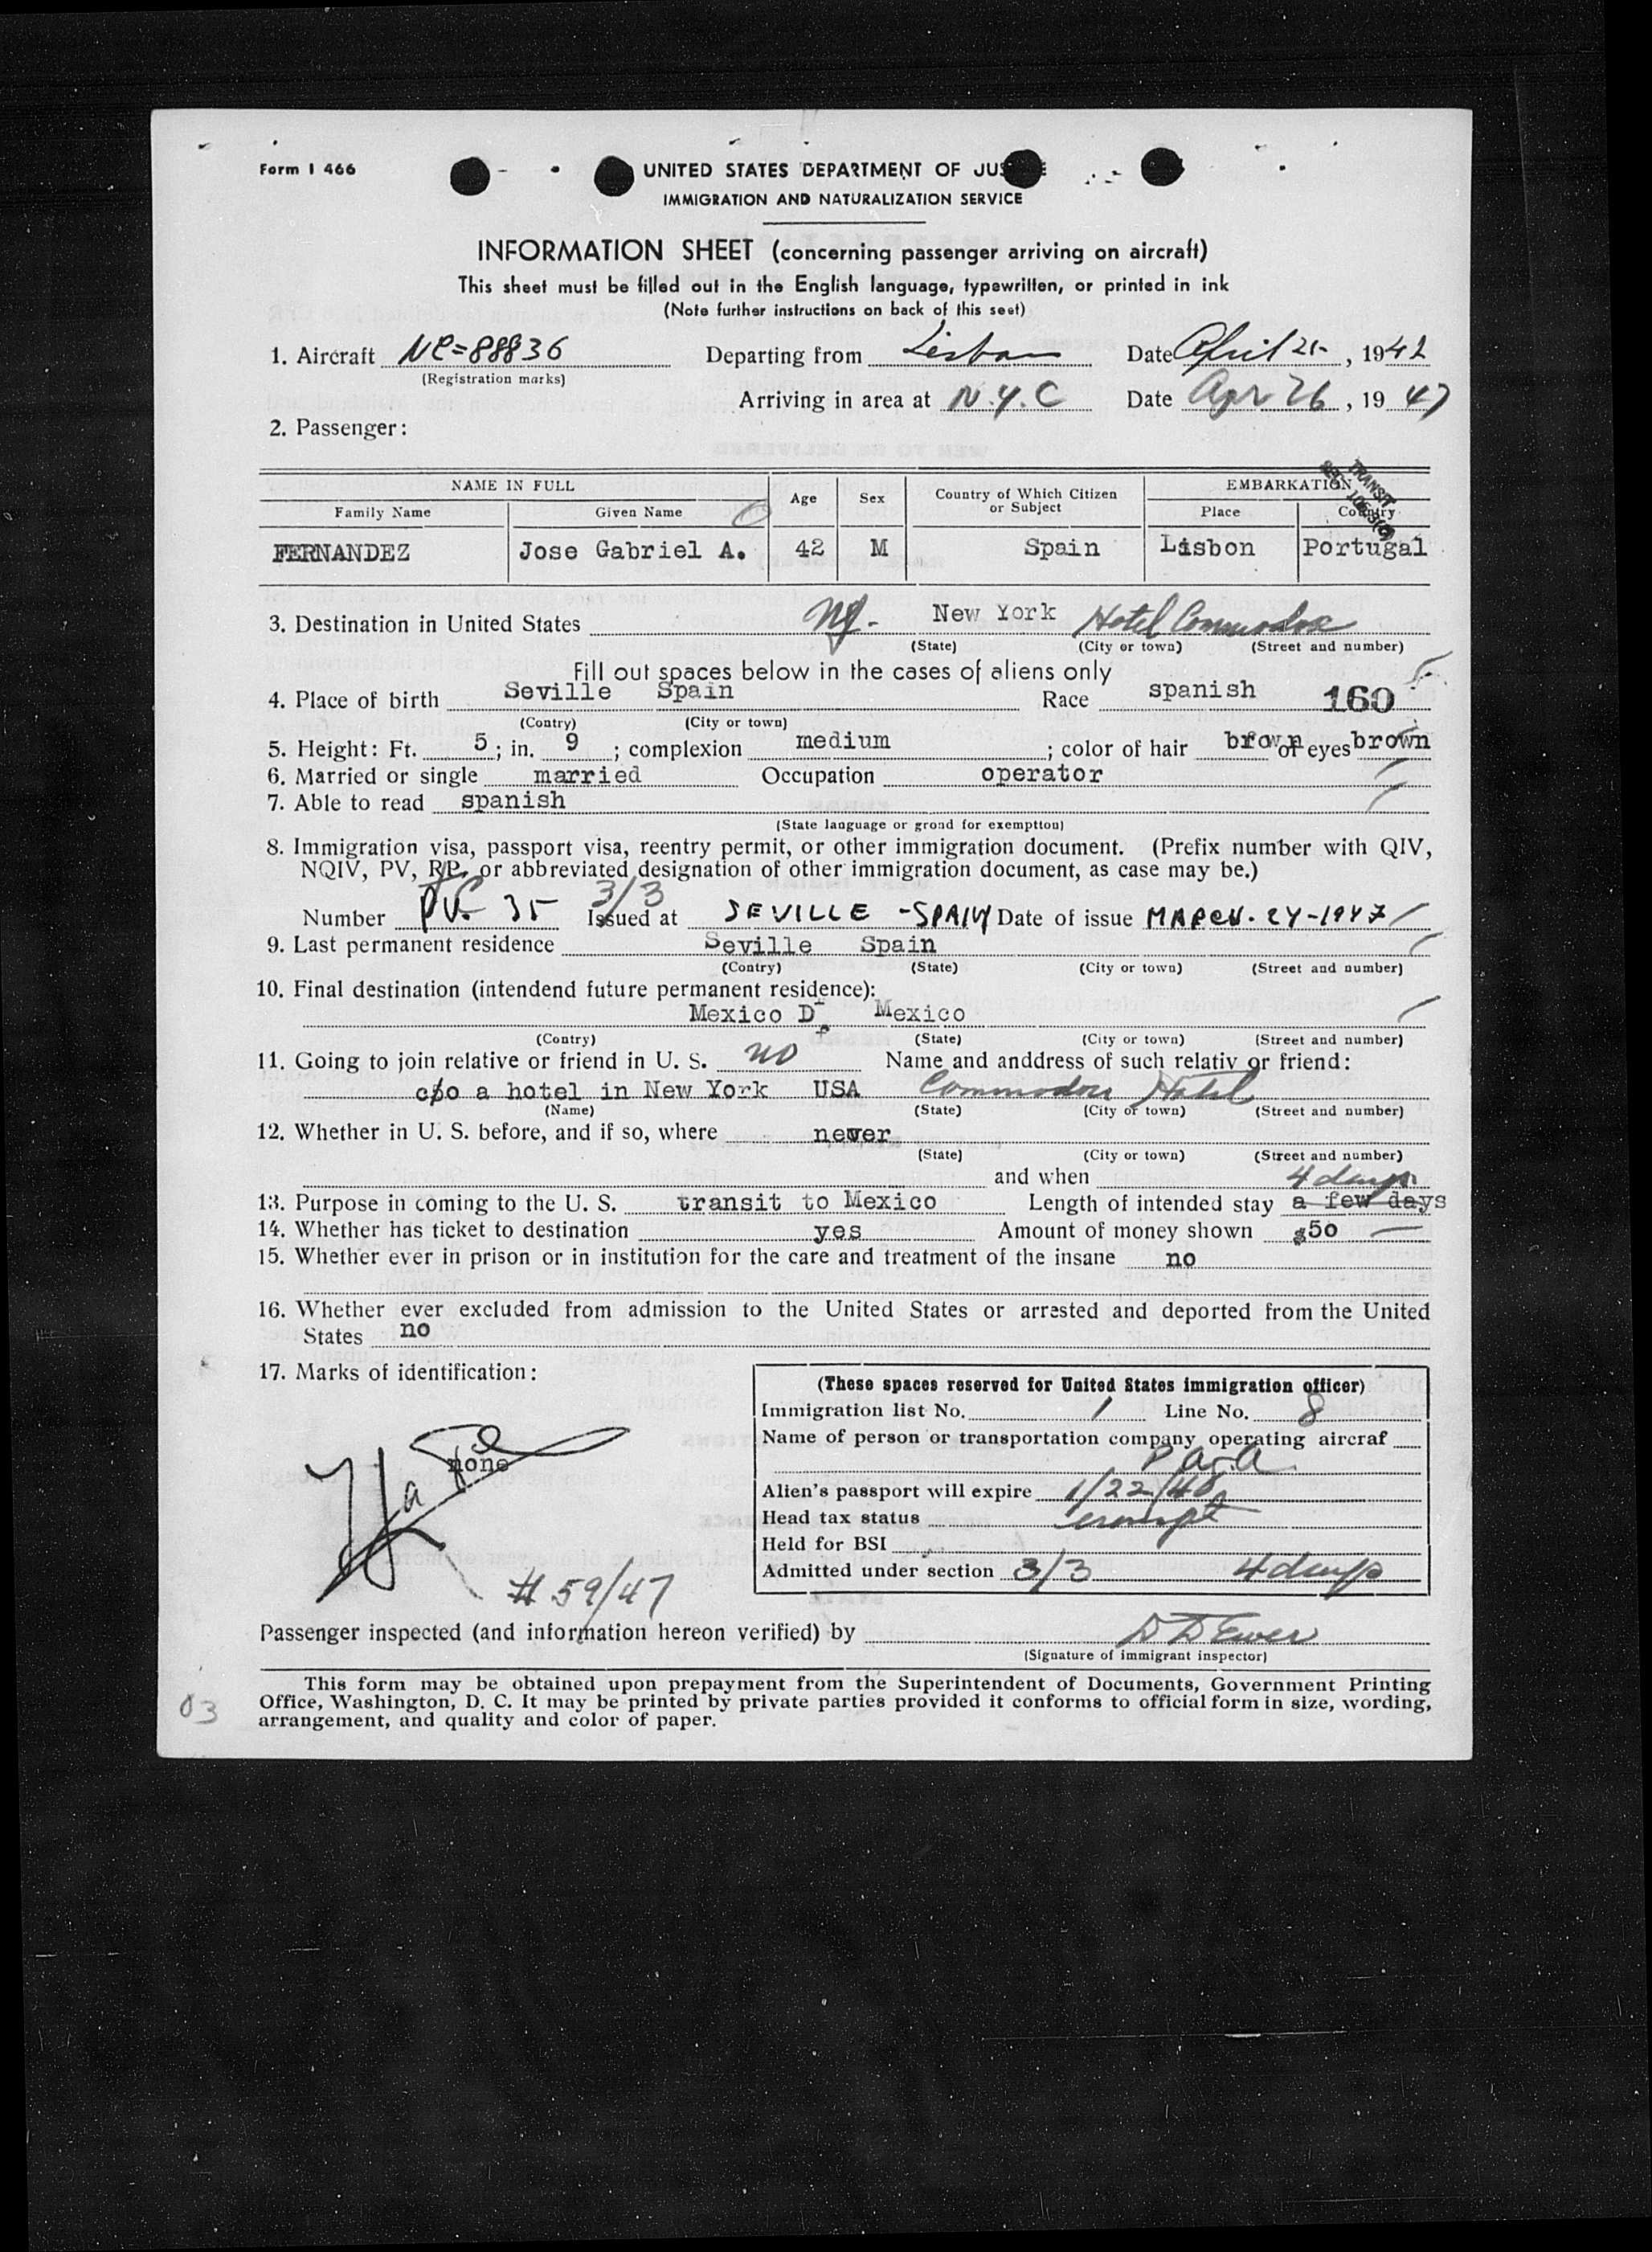 Form I 466
UNITED STATES DEPARTMENT OF JUS E
IMMIGRATION AND NATURALIZATION SERVICE
INFORMATION SHEET (concerning passenger arriving on aircraft)
This sheet must be filled out in the English language, typewritten, or printed in ink
(Note further instructions on back of this seet)
1. Aircraft NC=88836 Departing from Lisbon Date April 25, 1942
(Registration marks)
Arriving in area at N.Y.C Date Apr 26, 1947
2. Passenger:
NAME IN FULL Age Sex Country of Which Citizen or Subject EMBARKATION
Family Name Given Name Place Country
TRANSIT
FERNANDEZ Jose Gabriel A. 42 M Spain Lisbon Portugal
3. Destination in United States NY. New York Hotel Commodore
(State) (City or town) (Street and number)
Fill out spaces below in the cases of aliens only
4. Place of birth Seville Spain Race spanish 160
(Contry) (City or town)
5. Height: Ft. 5; in. 9; complexion medium; color of hair brown of eyes brown
6. Married or single married Occupation operator
7. Able to read spanish
(State language or grond for exemptton)
8. Immigration visa, passport visa, reentry permit, or other immigration document. (Prefix number with QIV,
NQIV, PV, RP, or abbreviated designation of other immigration document, as case may be.)
3/3
Number PV. 35 Issued at SEVILLE -SPAIN Date of issue MARCH. 24-1947
9. Last permanent residence Seville Spain
(Contry) (State) (City or town) (Street and number)
10. Final destination (intendend future permanent residence):
Mexico D f Mexico
(Contry) (State) (City or town) (Street and number)
11. Going to join relative or friend in U. S. no Name and anddress of such relativ or friend:
c/o a hotel in New York USA Commodore Hotel
(Name) (State) (City or town) (Street and number)
12. Whether in U. S. before, and if so, where never
(State) (City or town) (Street and number)
and when
4 days
13. Purpose in coming to the U. S. transit to Mexico Length of intended stay a few days
14. Whether has ticket to destination yes Amount of money shown $50
15. Whether ever in prison or in institution for the care and treatment of the insane no
16. Whether ever excluded from admission to the United States or arrested and deported from the United
States no
17. Marks of identification:
none
# 59/47
(These spaces reserved for United States immigration officer)
Immigration list No. 1 Line No. 8
Name of person or transportation company operating aircraf
P.A.A.
Alien's passport will expire 1/22/48
Head tax status exempt
Held for BSI
Admitted under section 3/3 4 days
Passenger inspected (and information hereon verified) by D D Ewer
(Signature of immigrant inspector)
This form may be obtained upon prepayment from the Superintendent of Documents, Government Printing
Office, Washington, D. C. It may be printed by private parties provided it conforms to official form in size, wording,
arrangement, and quality and color of paper.
03